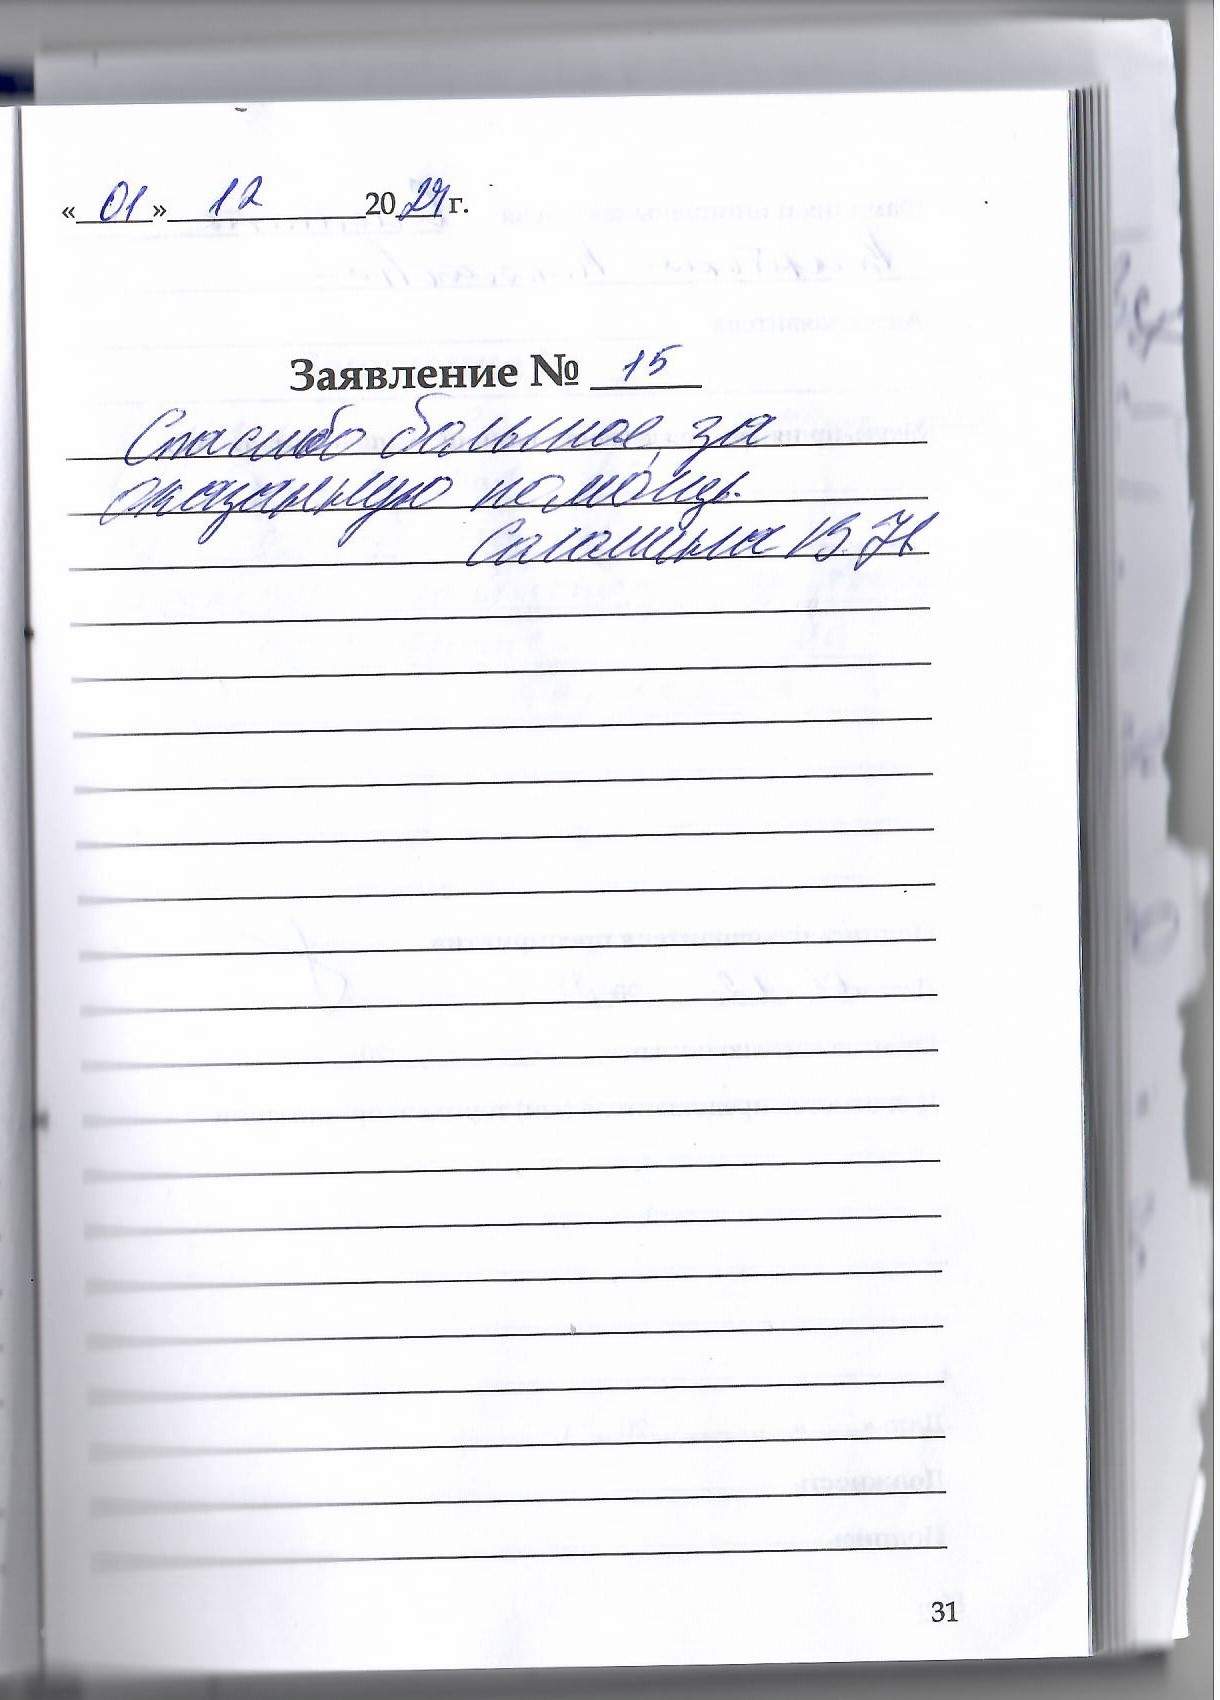 «01» 12 2024 г.
Заявление № 15
Спасибо большое за
оказанную помощь.
В.Л
31